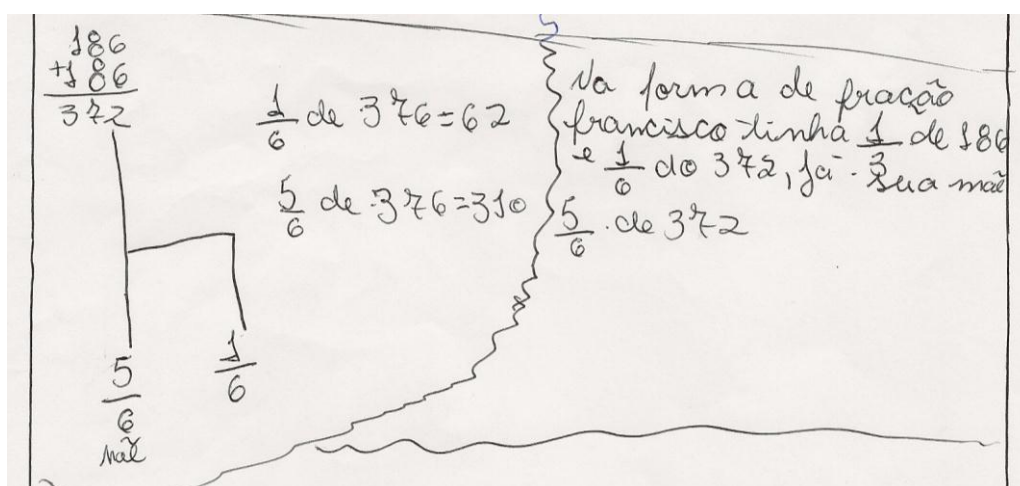 186
+186
372
1/6 de 376=62
5/6 de 376=310
5/6
mãe
1/6
Na forma de fração
francisco tinha 1/3 de 186
e 1/6 do 372, já sua mãe
5/6 de 372